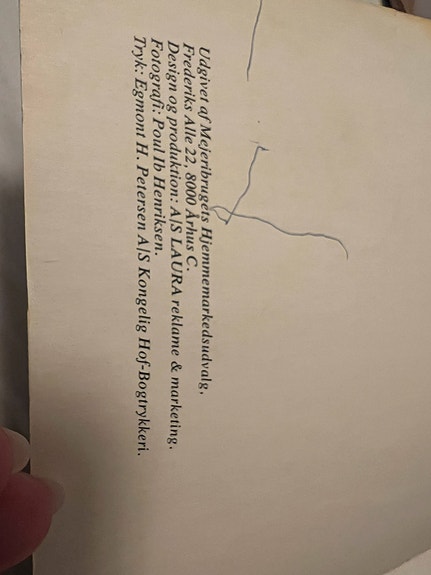 Udgivet af Mejeribrugets Hjemmemarkedsudvalg,
Frederiks Alle 22, 8000 Århus C.
Design og produktion: A/S LAURA reklame & marketing.
Fotografi: Poul Ib Henriksen.
Tryk: Egmont H. Petersen A/S Kongelig Hof-Bogtrykkeri.